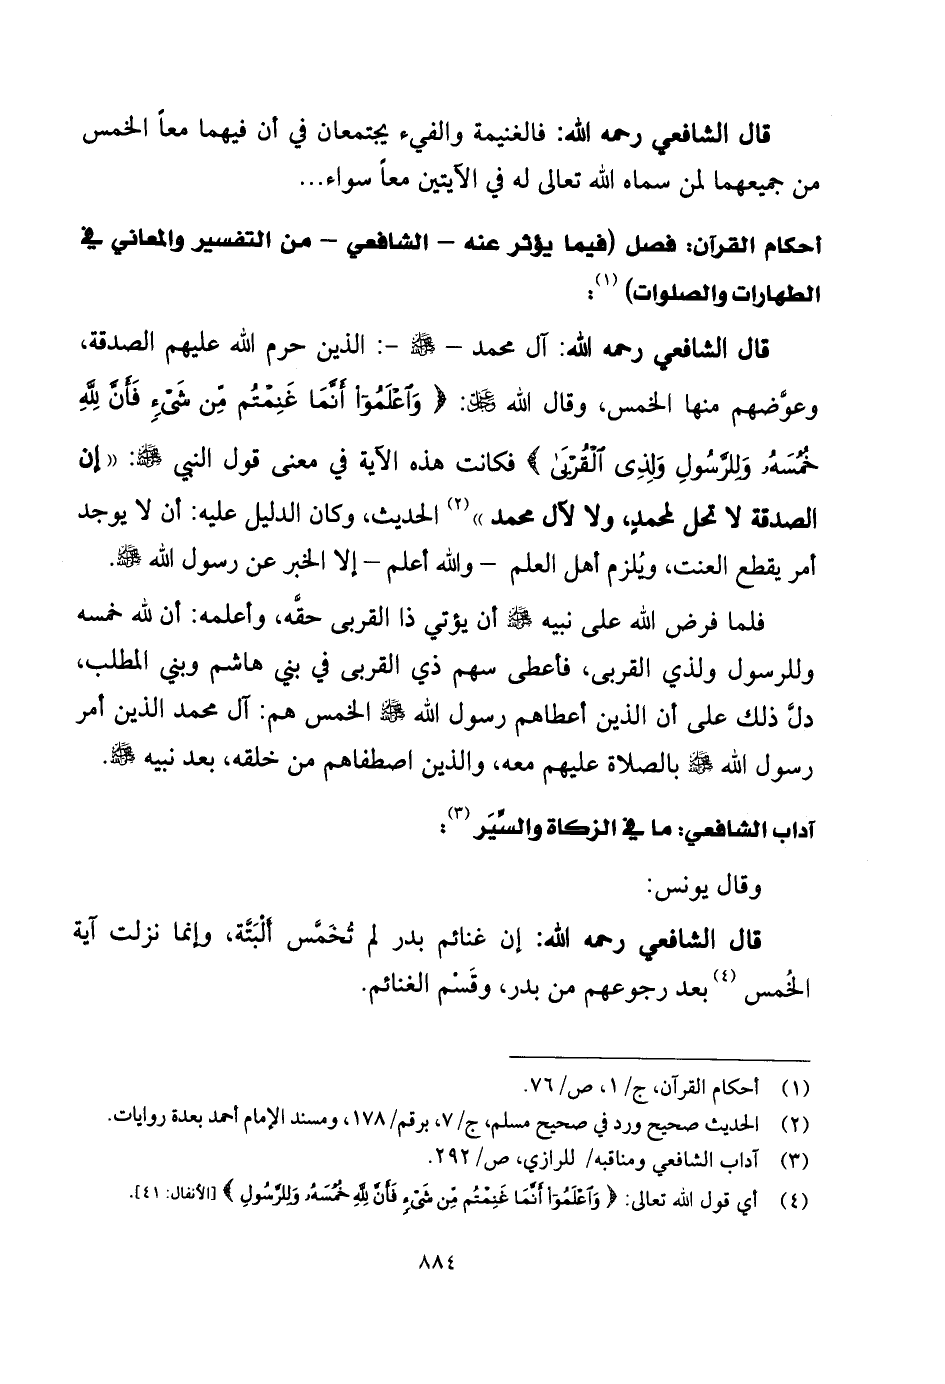 قال الشافعي رحمه الله: فالغنيمة والفيء يجتمعان في أن فيهما معاً الخمس
من جميعهما لمن سماه الله تعالى له في الآيتين معاً سواء...
أحكام القرآن: فصل (فيما يؤثر عنه – الشافعي – من التفسير والمعاني في
الطهارات والصلوات) (١):
قال الشافعي رحمه الله: آل محمد – ﷺ –: الذين حرم الله عليهم الصدقة،
وعوَّضهم منها الخمس، وقال الله ﷻ: ﴿ وَٱعۡلَمُوٓاْ أَنَّمَا غَنِمۡتُم مِّن شَيۡءٖ فَأَنَّ لِلَّهِ
خُمُسَهُۥ وَلِلرَّسُولِ وَلِذِى ٱلۡقُرۡبَىٰ ﴾ فكانت هذه الآية في معنى قول النبي ﷺ: « إن
الصدقة لا تحل لمحمدٍ، ولا لآل محمد »(٢) الحديث، وكان الدليل عليه: أن لا يوجد
أمر يقطع العنت، ويُلزم أهل العلم – والله أعلم – إلا الخبر عن رسول الله ﷺ.
فلما فرض الله على نبيه ﷺ أن يؤتي ذا القربى حقَّه، وأعلمه: أن لله خمسه
وللرسول ولذي القربى، فأعطى سهم ذي القربى في بني هاشم وبني المطلب،
دلَّ ذلك على أن الذين أعطاهم رسول الله ﷺ الخمس هم: آل محمد الذين أمر
رسول الله ﷺ بالصلاة عليهم معه، والذين اصطفاهم من خلقه، بعد نبيه ﷺ.
آداب الشافعي: ما في الزكاة والسِّيَر (٣):
وقال يونس:
قال الشافعي رحمه الله: إن غنائم بدر لم تُخَمَّس أَلْبَتَّة، وإنما نزلت آية
الخُمس (٤) بعد رجوعهم من بدر، وقَسْم الغنائم.
(١) أحكام القرآن، ج/ ١، ص/ ٧٦.
(٢) الحديث صحيح ورد في صحيح مسلم، ج/ ٧، برقم/ ١٧٨، ومسند الإمام أحمد بعدة روايات.
(٣) آداب الشافعي ومناقبه/ للرازي، ص/ ٢٩٢.
(٤) أي قول الله تعالى: ﴿ وَٱعۡلَمُوٓاْ أَنَّمَا غَنِمۡتُم مِّن شَيۡءٖ فَأَنَّ لِلَّهِ خُمُسَهُۥ وَلِلرَّسُولِ ﴾ [الأنفال: ٤١].
٨٨٤